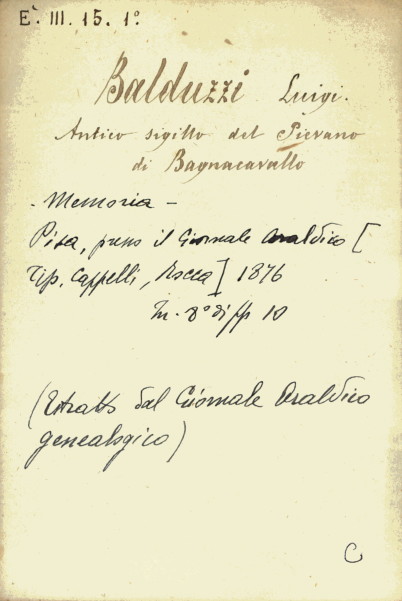 E. III. 15. 1º
Balduzzi Luigi.
Antico sigillo del Pievano
di Bagnacavallo
- Memoria -
Pisa, presso il Giornale Araldico [
Tip. Cappelli, Rocca] 1876
In. 8º di pp 10
(Estratto dal Giornale Araldico
genealogico)
C